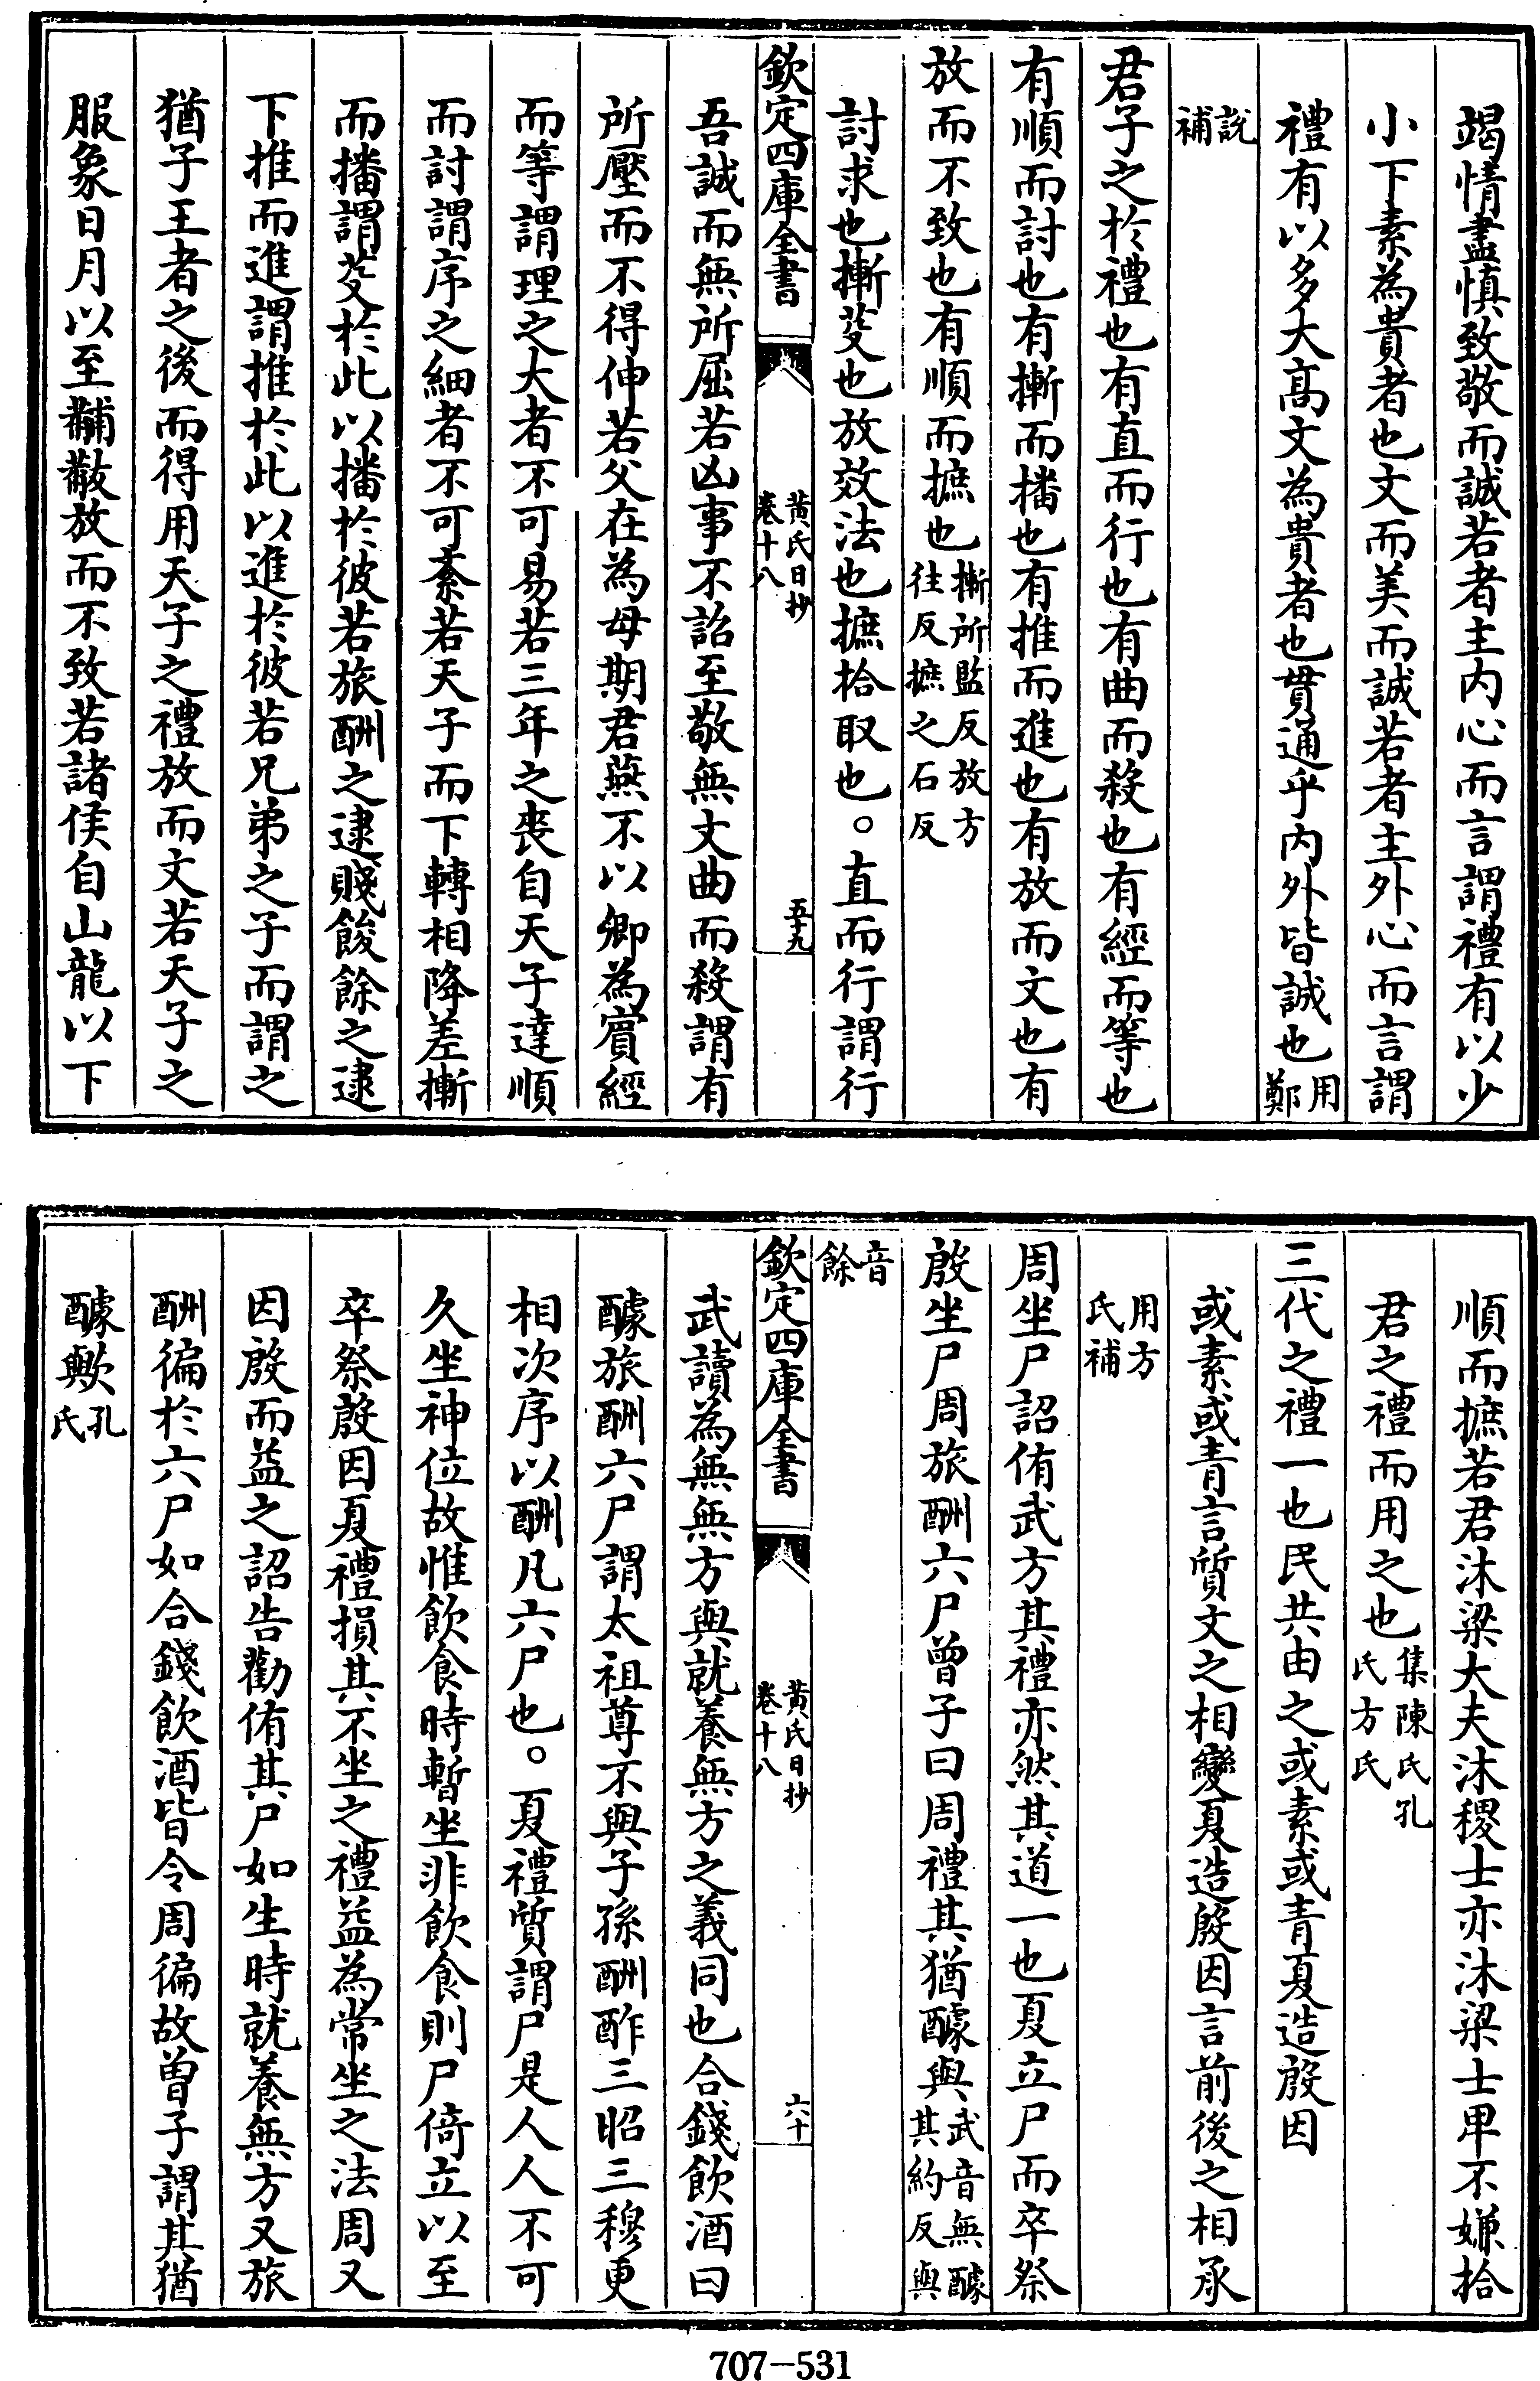 竭情盡慎致敬而誠若者主内心而言謂禮有以少
小下素為貴者也文而美而誠若者主外心而言謂
禮有以多大髙文為貴者也貫通乎内外皆誠也用鄭
說補
君子之於禮也有直而行也有曲而殺也有經而等也
有順而討也有摲而播也有推而進也有放而文也有
放而不致也有順而摭也摲所監反放方往反摭之石反
討求也摲芟也放效法也摭拾取也○直而行謂行
欽定四庫全書
黄氏日抄
卷十八
五十九
吾誠而無所屈若凶事不詔至敬無文曲而殺謂有
所壓而不得伸若父在為母期君燕不以卿為賓經
而等謂理之大者不可易若三年之喪自天子達順
而討謂序之細者不可紊若天子而下轉相降差摲
而播謂芟於此以播於彼若旅酬之逮賤餕餘之逮
下推而進謂推於此以進於彼若兄弟之子而謂之
猶子王者之後而得用天子之禮放而文若天子之
服象日月以至黼黻放而不致若諸侯自山龍以下
順而摭若君沐粱大夫沐稷士亦沐粱士卑不嫌拾
君之禮而用之也集陳氏孔氏方氏
三代之禮一也民共由之或素或青夏造殷因
或素或青言質文之相變夏造殷因言前後之相承
用方氏補
周坐尸詔侑武方其禮亦然其道一也夏立尸而卒祭
殷坐尸周旅酬六尸曾子曰周禮其猶醵與武音無醵其約反與
音餘
欽定四庫全書
黄氏日抄
卷十八
六十
武讀為無無方與就養無方之義同也合錢飲酒曰
醵旅酬六尸謂太祖尊不與子孫酬酢三昭三穆更
相次序以酬凡六尸也○夏禮質謂尸是人人不可
久坐神位故惟飲食時暫坐非飲食則尸倚立以至
卒祭殷因夏禮損其不坐之禮益為常坐之法周又
因殷而益之詔告勸侑其尸如生時就養無方又旅
酬徧於六尸如合錢飲酒皆令周徧故曾子謂其猶
醵歟孔氏
707—531